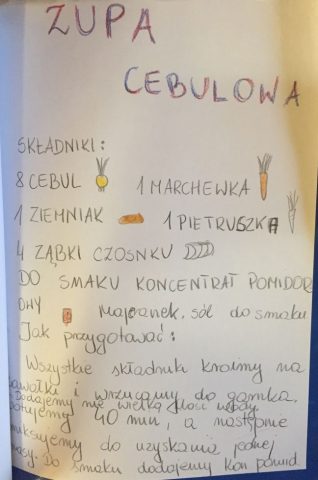 ZUPA
CEBULOWA
SKŁADNIKI:
8 CEBUL 1 MARCHEWKA
1 ZIEMNIAK 1 PIETRUSZKA
4 ZĄBKI CZOSNKU
DO SMAKU KONCENTRAT POMIDOR
OWY majeranek, sól do smaku
Jak przygotować:
Wszystkie składniki kroimy na
kawałki i wrzucamy do garnka,
Dodajemy nie wielką ilość wody.
gotujemy 40 min, a następnie
miksujemy do uzyskania jednej
masy. Do smaku dodajemy kon pomid.